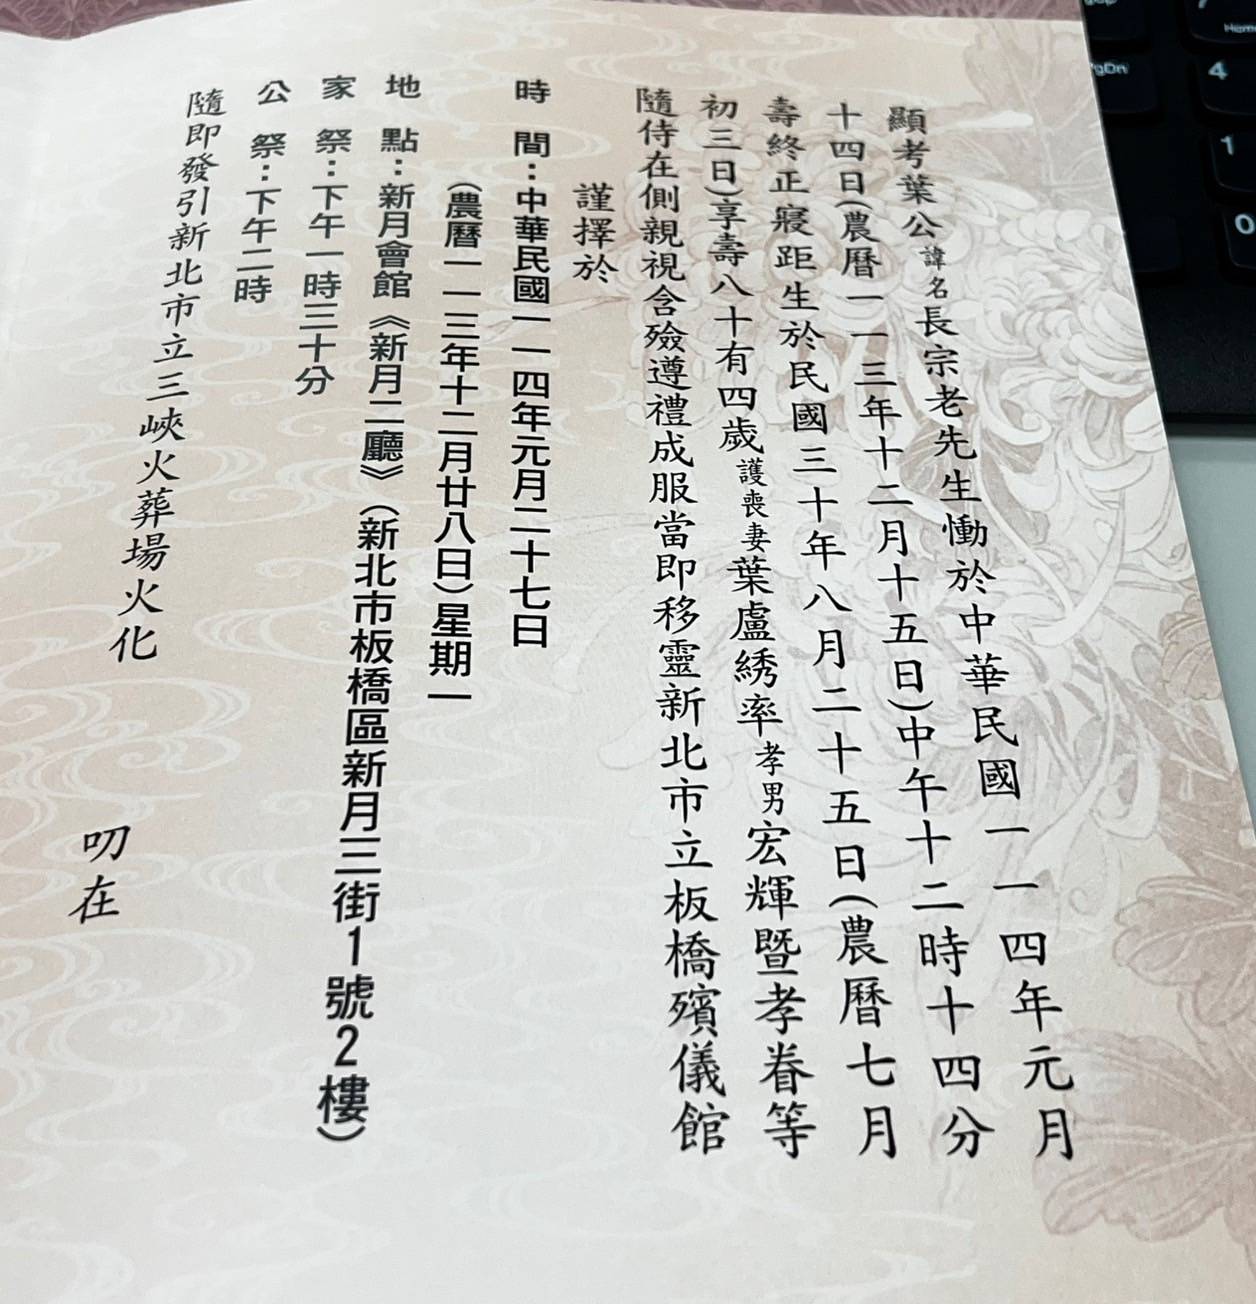 顯考葉公諱名長宗老先生慟於中華民國一一四年元月
十四日(農曆一一三年十二月十五日)中午十二時十四分
壽終正寢距生於民國三十年八月二十五日(農曆七月
初三日)享壽八十有四歲護喪妻葉盧綉率孝男宏輝暨孝眷等
隨侍在側親視含殮遵禮成服當即移靈新北市立板橋殯儀館
謹擇於
時間：中華民國一一四年元月二十七日
(農曆一一三年十二月廿八日)星期一
地點：新月會館《新月二廳》(新北市板橋區新月三街1號2樓)
家祭：下午一時三十分
公祭：下午二時
隨即發引新北市立三峽火葬場火化
叨在
Home
PgDn
4
1
0